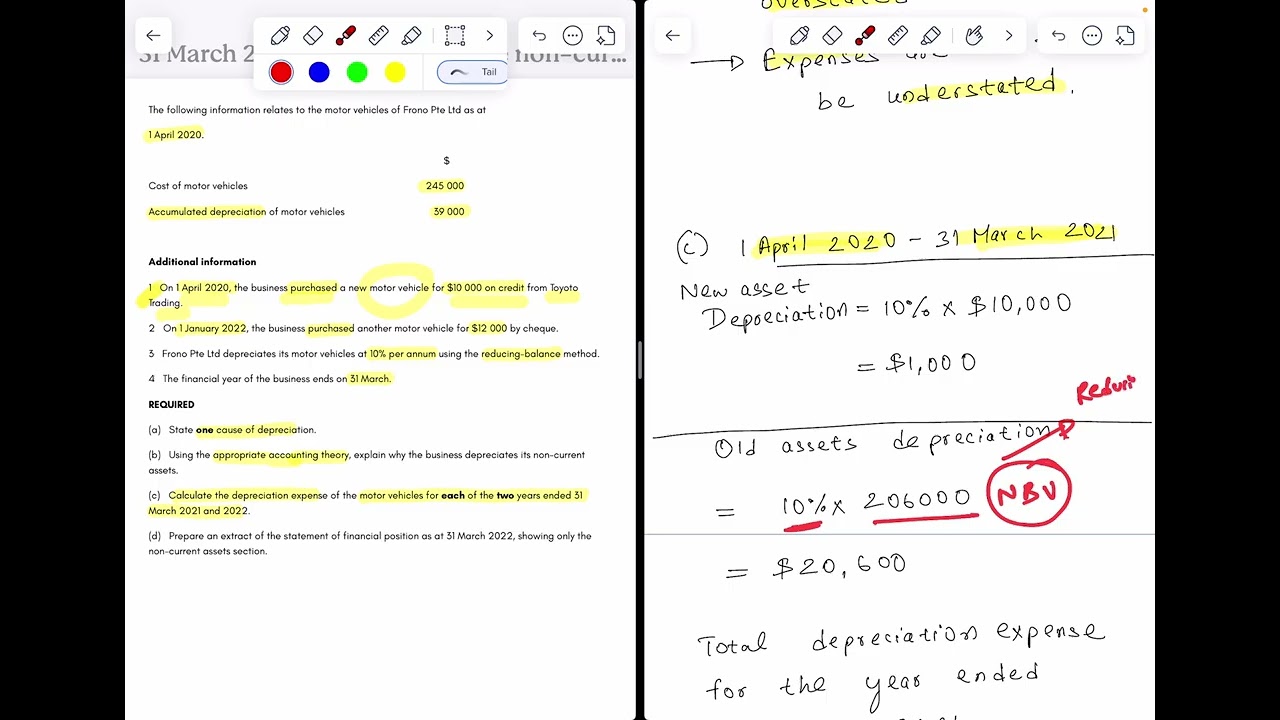 31 March 2
non-cur...
Tail
The following information relates to the motor vehicles of Frono Pte Ltd as at
1 April 2020.
$
Cost of motor vehicles 245 000
Accumulated depreciation of motor vehicles 39 000
Additional information
1 On 1 April 2020, the business purchased a new motor vehicle for $10 000 on credit from Toyoto
Trading.
2 On 1 January 2022, the business purchased another motor vehicle for $12 000 by cheque.
3 Frono Pte Ltd depreciates its motor vehicles at 10% per annum using the reducing-balance method.
4 The financial year of the business ends on 31 March.
REQUIRED
(a) State one cause of depreciation.
(b) Using the appropriate accounting theory, explain why the business depreciates its non-current
assets.
(c) Calculate the depreciation expense of the motor vehicles for each of the two years ended 31
March 2021 and 2022.
(d) Prepare an extract of the statement of financial position as at 31 March 2022, showing only the
non-current assets section.
overstated
→ Expenses
be understated.
(c) 1 April 2020 - 31 March 2021
New asset
Depreciation = 10% x $10,000
= $1,000
Reduri
Old assets depreciation
= 10% x 206000 NBV
= $20,600
Total depreciation expense
for the year ended